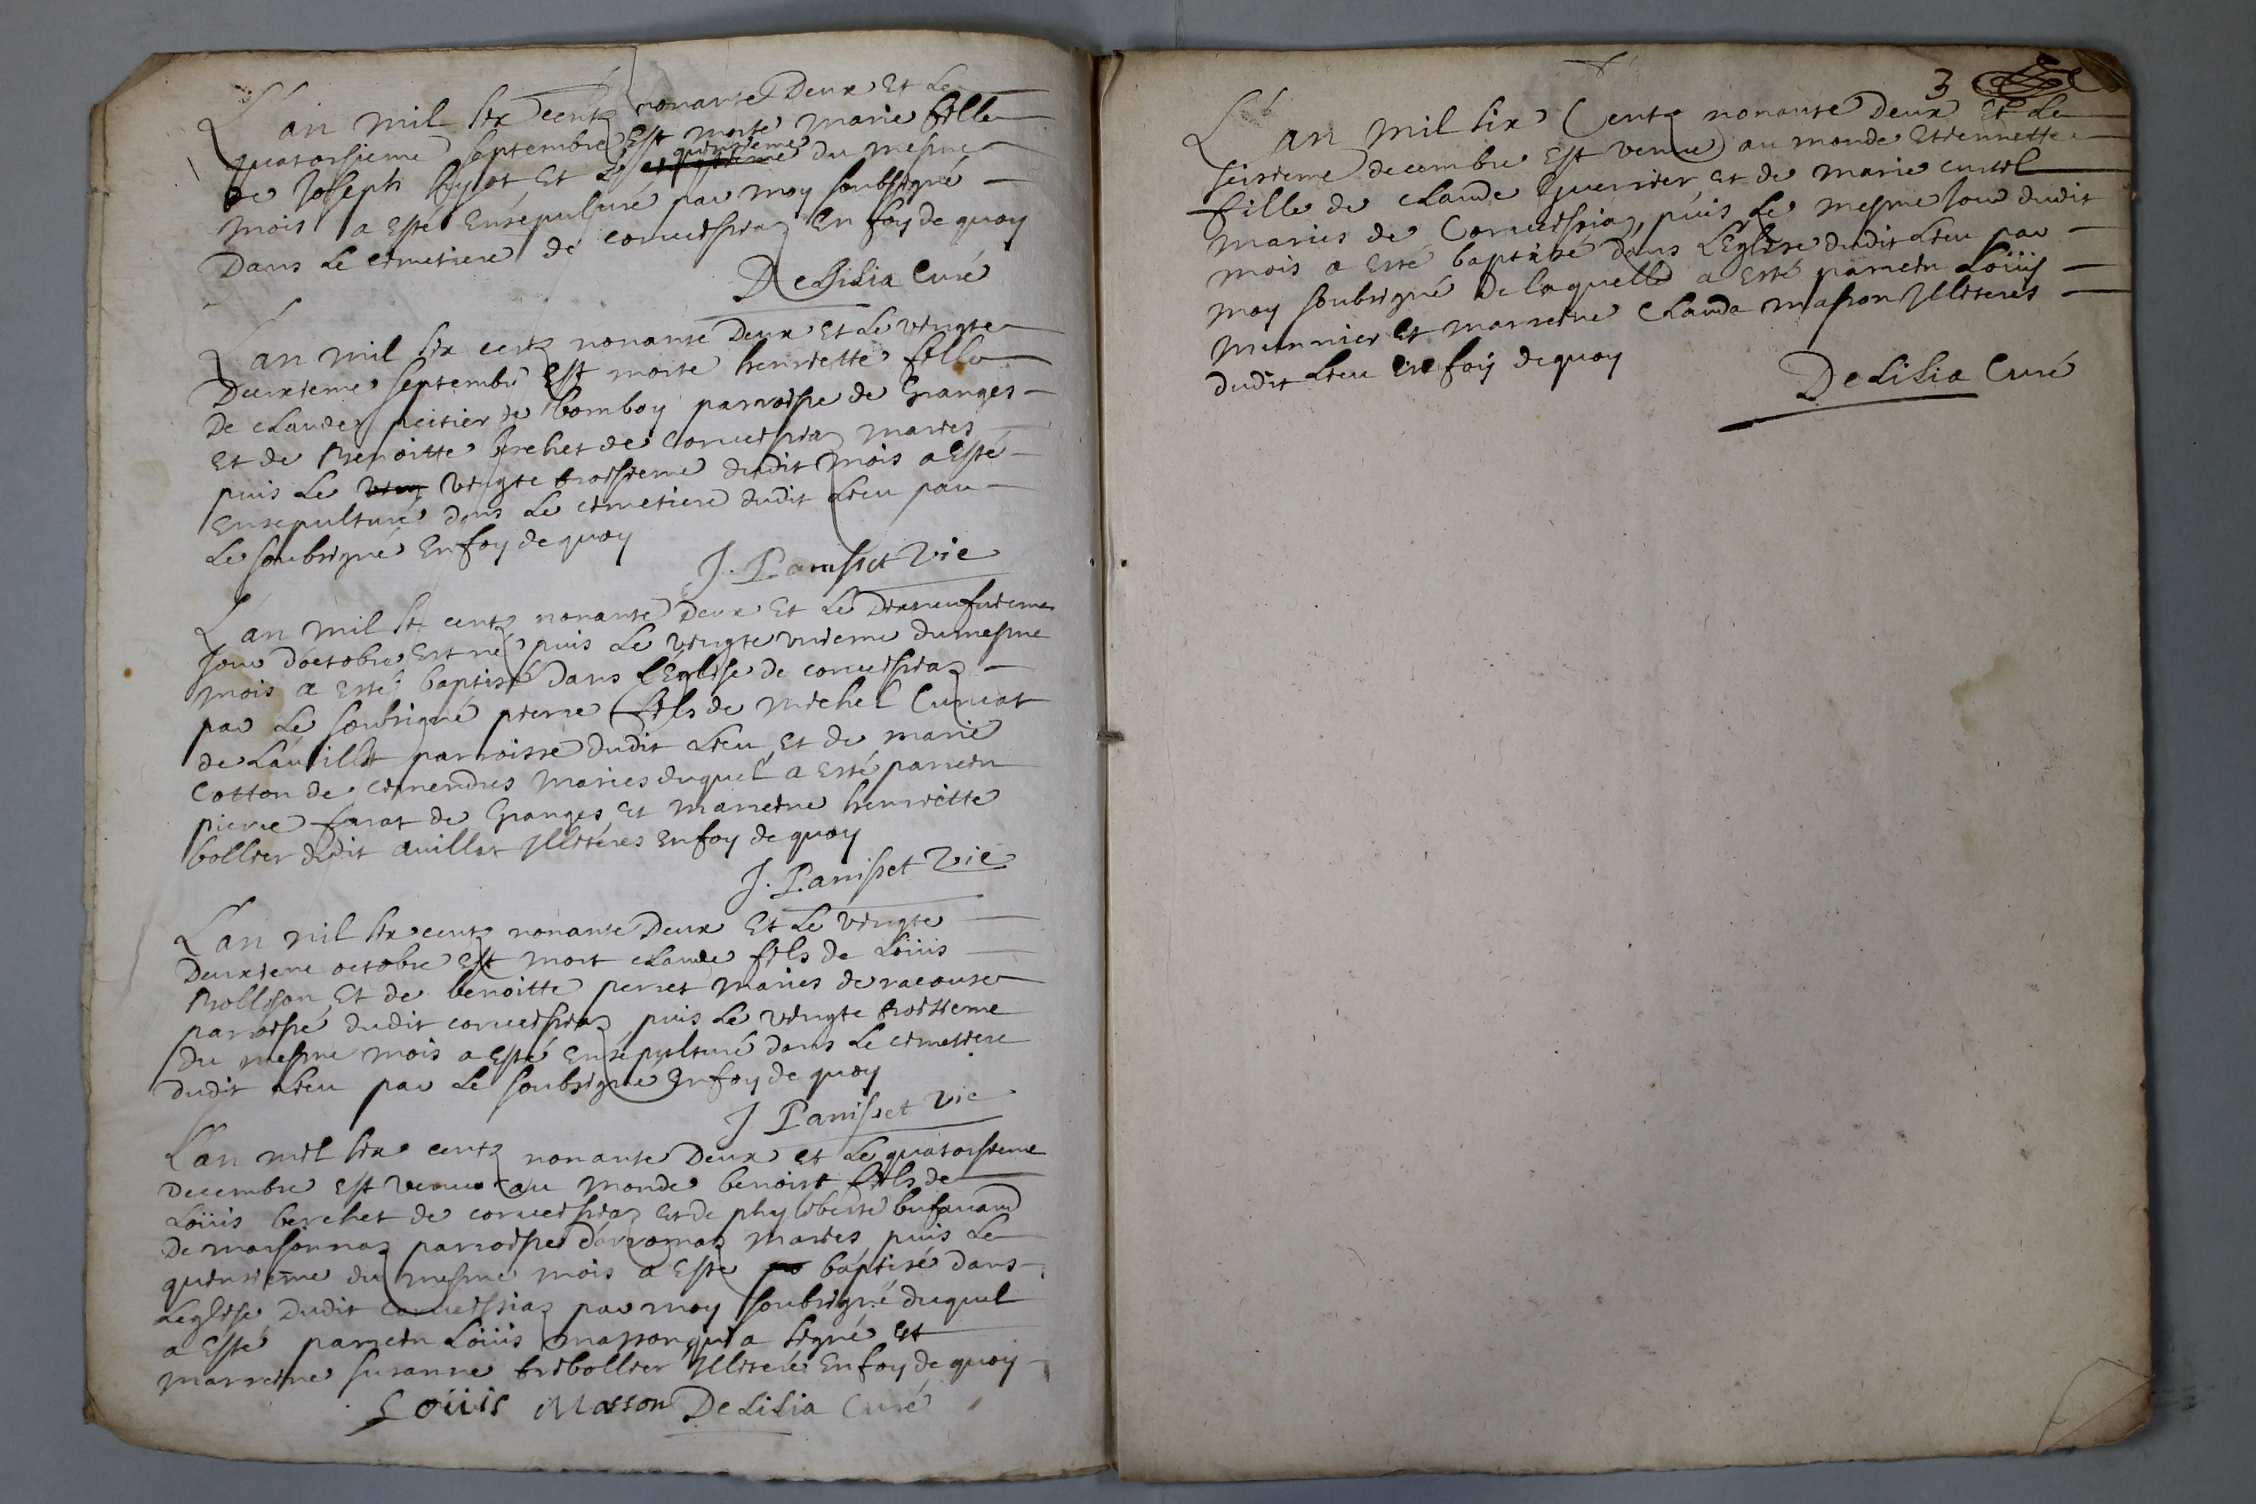 L'an mil six centz nonante Deux Et Le
quatorsieme septembre Est morte Marie fille
de Joseph Et Le quinsieme du mesme
mois a Esté Ensepulturé par moy soubsigné
Dans Le cimetiere de corueissiaz En foy de quoy
DeLilia Curé
L'an mil six centz nonante Deux Et Le vingte
Deuxieme septembre Est morte henriette fille
De claude peitier de bomboy parroisse de Granges
Et de Benoitte frehet de Corueissiaz maries
puis Le vingte troisieme dudit mois a Esté
Ensepulturé dans Le cimetiere dudit Lieu par
Le soubsigné En foy de quoy
J. Panisset Vic
L'an mil six centz nonante Deux Et Le Dixneufuieme
Jour d'octobre Est né puis Le vingte vnieme du mesme
mois a Esté baptisé Dans L'Eglise de corueissiaz
par Le soubsigné pierre fils de Michel Curuat
de Lauillat parroisse dudit Lieu Et de marie
Cotton de cimendres Maries duquel a Esté parrein
pierre furat de Granges Et Marreine henriette
bollier dudit auillat Jlliteres En foy de quoy
J. Panisset Vic
L'an mil six centz nonante Deux Et Le vingte
Deuxieme octobre Est mort claude fils de Loüis
Rollyson Et de benoitte perret Maries de racouse
parroisse dudit corueissiaz puis Le vingte troisieme
Du mesme mois a Esté Ensepulturé dans Le cimetiere
dudit Lieu par Le soubsigné En foy de quoy
J Panisset Vic
L'an mil six centz nonante Deux et Le quatorsieme
Decembre Est venu au monde benoist fils de
Loüis berchet de corueissiaz Et de phyliberte bufauand
De marsonnaz parroisse d'arromaz maries puis Le
quinsieme du mesme mois a Esté baptisé dans
L'eglise Dudit Corueissiaz par moy soubsigné duquel
a Esté parrein Loüis masson qui a signé Et
marreine susanne tribollier Jlliteré En foy de quoy
Loüis Masson DeLilia Curé
3
L'An Mil six Centz nonante Deux Et Le
seisieme decembre Est venue au monde Etiennette
fille de claude Guerrier et de Marie curtil
maries de Corueissiaz, puis Le mesme Jour dudit
mois a Esté baptisé dans L'Eglise dudit Lieu par
moy soubsigné De laquelle a Esté parrein Loüis
Munnier Et marreine Clauda masson Jlliteres
dudit Lieu En foy de quoy
DeLilia Curé